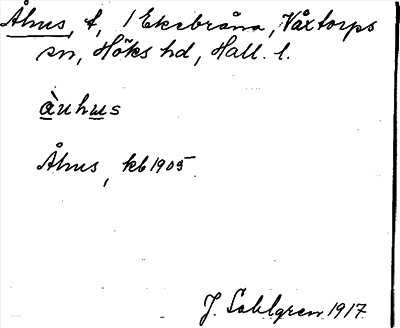 Åhus, t, 1 Ekebråna, Våxtorps
sn, Höks hd, Hall. l.
àuhus
Åhus, kb 1905
J. Sahlgren 1917